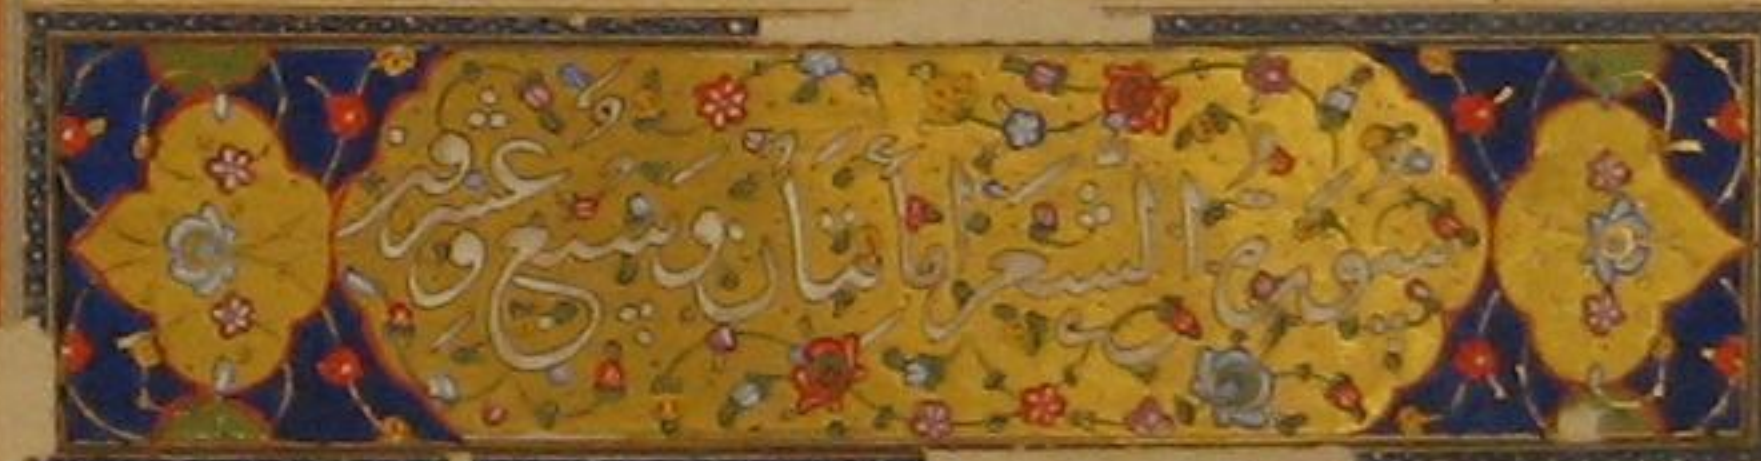 سورة الشعرا مأتان وسبع وعشرون